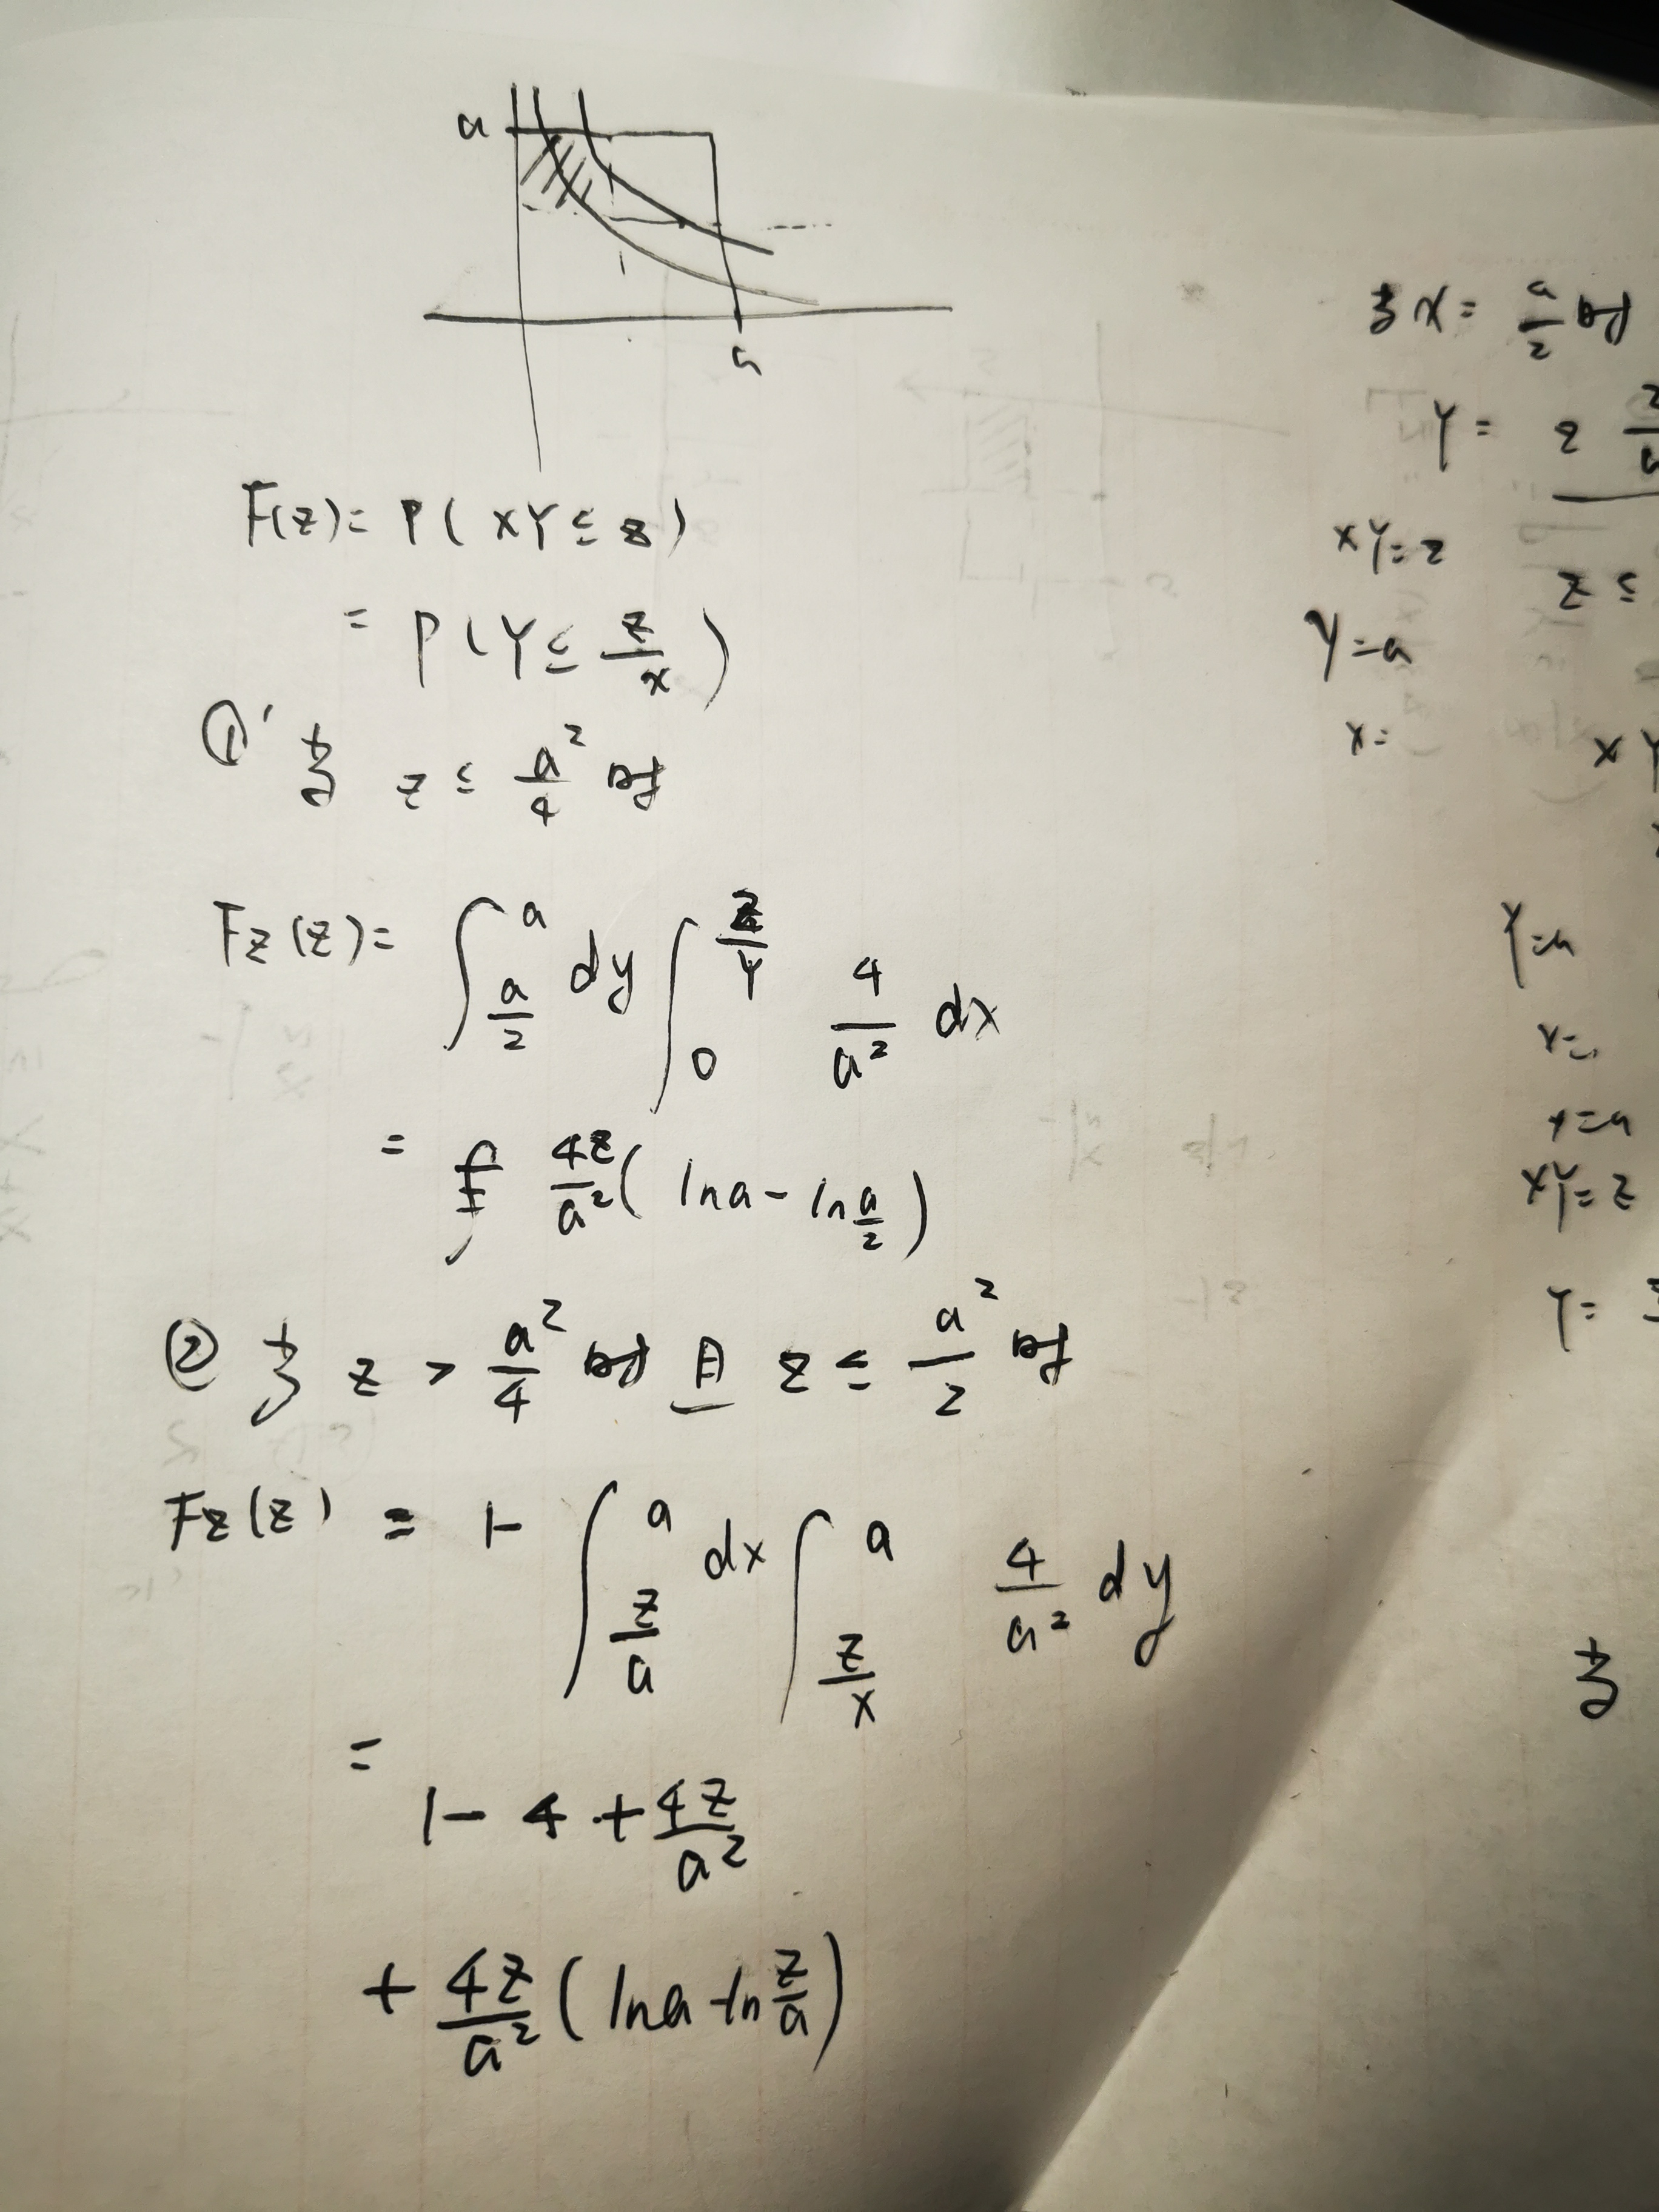 a
a
F(z)= P( XY ≤ z)
= P(Y ≤ z/x)
①' 当 z ≤ a²/4 时
F_Z(z)= ∫_{a/2}^{a} dy ∫_{0}^{z/Y} 4/a² dx
= 4z/a² ( lna - ln a/2 )
② 当 z > a²/4 时 且 z ≤ a²/2 时
F_Z(z) = 1- ∫_{z/a}^{a} dx ∫_{z/x}^{a} 4/a² dy
= 1- 4 + 4z/a²
+ 4z/a² ( lna - ln z/a )
当 X = a/2 时
Y =
XY=z
z ≤
Y=a
x=
Y=a
XY=z
Y=
当